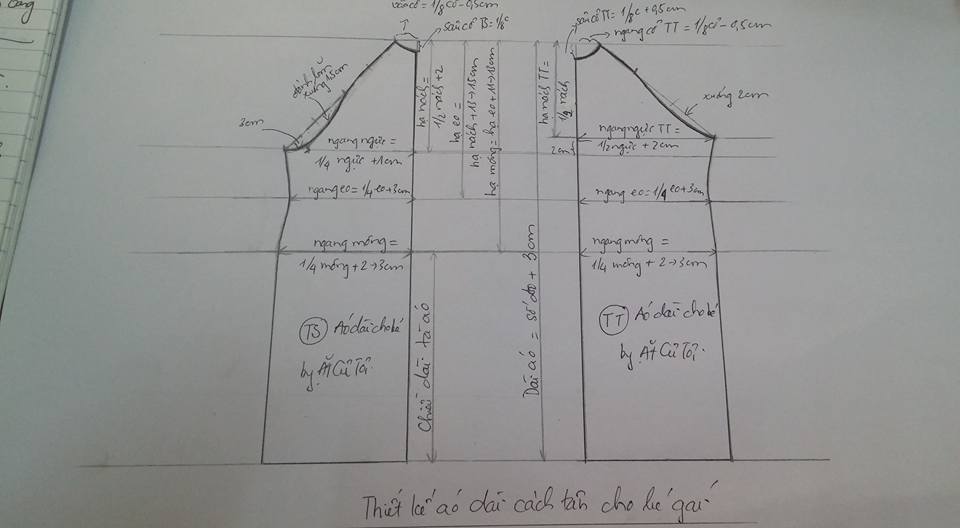 vào cổ = 1/8 cổ - 0,5cm
sâu cổ TS = 1/8 c
sâu cổ TT = 1/8 c + 0,5cm
ngang cổ TT = 1/8 cổ - 0,5cm
đánh lõm
xuống 1,5cm
3cm
hạ nách =
1/2 nách + 2
hạ eo =
hạ nách + 13 → 15cm
hạ mông = hạ eo + 11 → 13cm
hạ nách TT =
1/2 nách
xuống 2cm
2cm
ngang ngực =
1/4 ngực + 1cm
ngang ngực TT =
1/2 ngực + 2cm
ngang eo = 1/4 eo + 3cm
ngang eo = 1/4 eo + 3cm
ngang mông =
1/4 mông + 2 → 3cm
ngang mông =
1/4 mông + 2 → 3cm
TS Aó dài cho bé
by Ặt Củ Tỏi
Chiều dài tà áo
Dài aó = số đo + 3cm
TT Aó dài cho bé
by Ặt Củ Tỏi
Thiết kế aó dài cách tân cho bé gaí